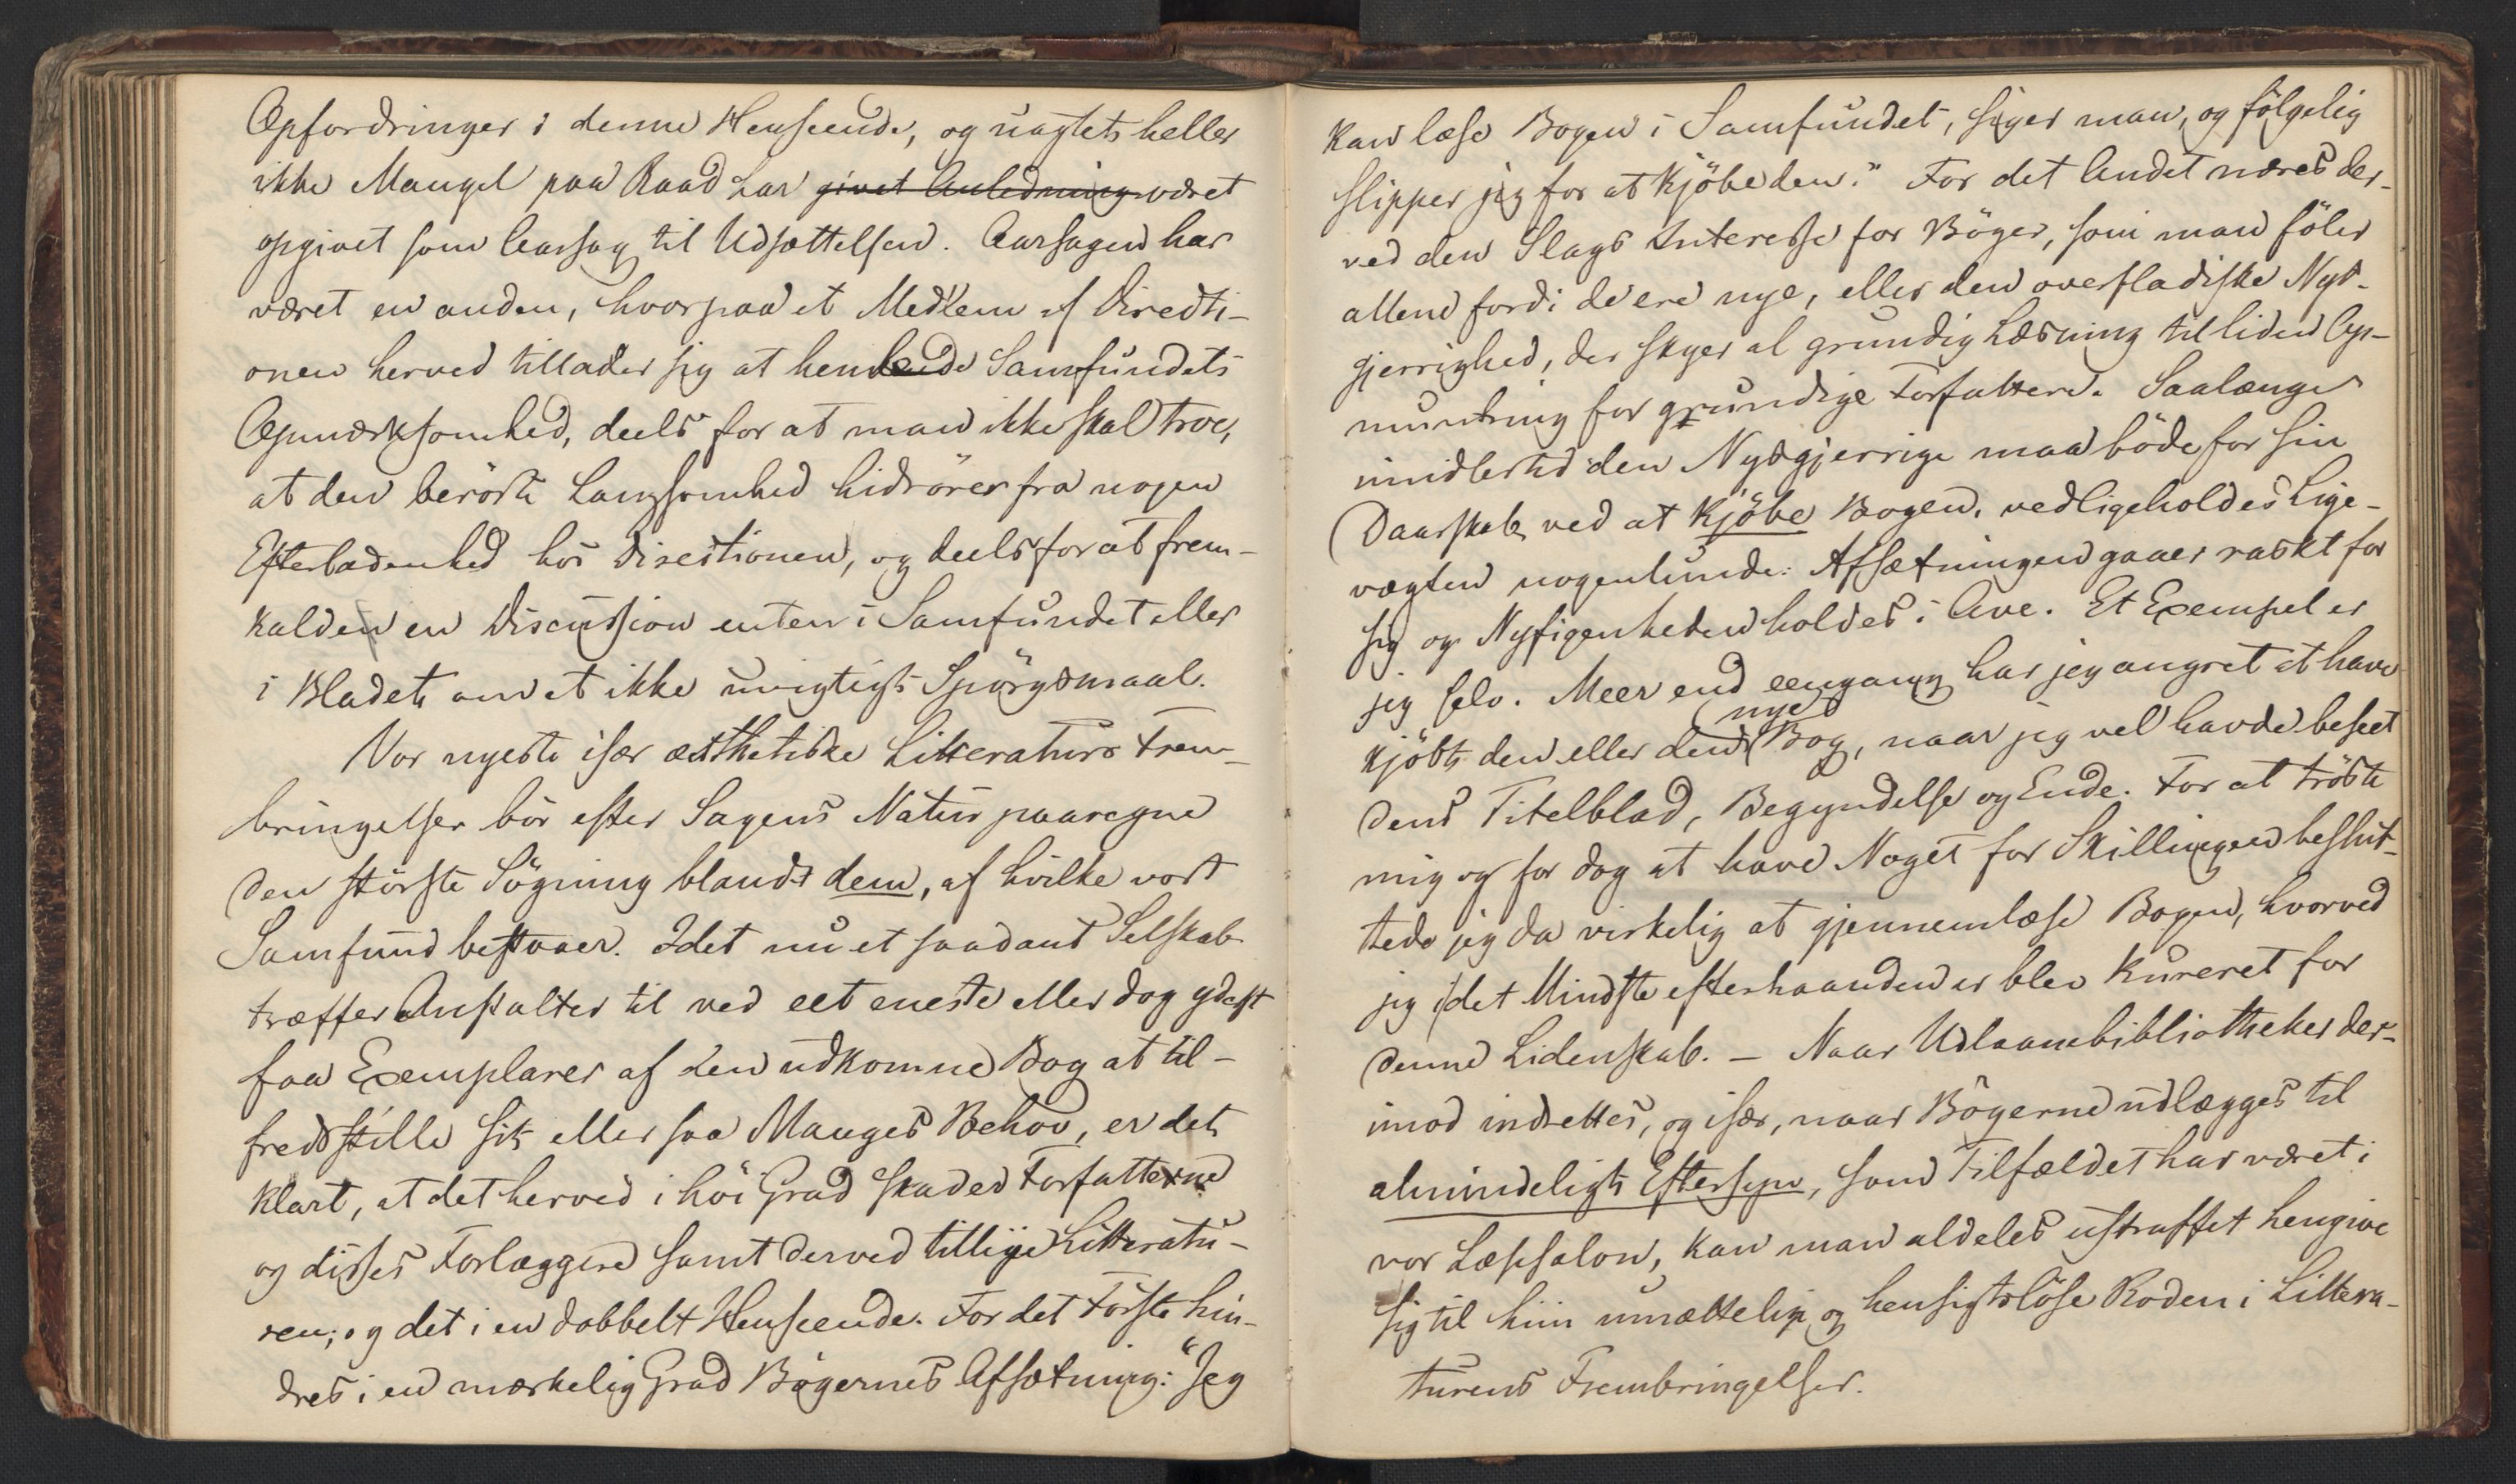 Opfordringer i denne Henseende, og uagtet heller
ikke Mangel paa Raad har givet Anledning været
opgivet som Aarsag til Udsættelsen. Aarsagen har
været en anden, hvorpaa et Medlem af Directi-
onen herved tillader sig at henlede Samfundets
Opmærksomhed, deels for at man ikke skal troe,
at den berörte Langsomhed hidrörer fra nogen
Efterladenhed hos Directionen, og deels for at frem-
kalde en Discussion enten i Samfundet eller
i Bladet om et ikke uvigtigt Spörgsmaal.
Vor nyeste især æsthetiske Litteraturs Frem-
bringelser bör efter Sagens Natur paaregne
den störste Sögning blandt dem, af hvilke vort
Samfund bestaaer. Idet nu et saadant Selskab
træffer Anstalter til ved eet eneste eller dog yderst
faa Exemplarer af den udkomne Bog at til-
fredsstille sit eller saa Manges Behov, er det
klart, at det herved i höi Grad skader Forfatterne
og disses Forlæggere samt derved tillige Litteratu-
ren; og det i en dobbelt Henseende. For det Förste hin-
dres i en mærkelig Grad Bögernes Afsætning: "Jeg
kan læse Bogen i Samfundet, siger man, og fölgelig
slipper jeg for at kjöbe den." For det Andet næres der-
ved den Slags Interesse for Böger, som man föler
allene fordi de ere nye, eller den overfladiske Nys-
gjerrighed, der skyer al grundig Læsning til liden Op-
muntring for grundige Forfattere. Saalænge
imidlertid den Nysgjerrige maa böde for sin
Daarskab ved at kjöbe Bogen, vedligeholdes Lige-
vægten nogenlunde: Afsætningen gaaer raskt for
sig og Nyfigenheden holdes i Ave. Et Exempel er
jeg selv. Meer end eengang har jeg angret at have
kjöbt den eller den nye Bog, naar jeg vel havde beseet
dens Titelblad, Begyndelse og Ende. For at tröste
mig og for dog at have Noget for Skillingen beslut-
tede jeg da virkelig at gjennemlæse Bogen, hvorved
jeg i det Mindste efterhaanden er blev kureret for
denne Lidenskab. – Naar Udlaansbibliotheker der-
imod indrettes, og især, naar Bögerne udlægges til
almindeligt Eftersyn, som Tilfældet har været i
vor Læsesalon, kan man aldeles ustraffet hengive
sig til hiin umættelige og hensigtslöse Roden i Littera-
turens Frembringelser.